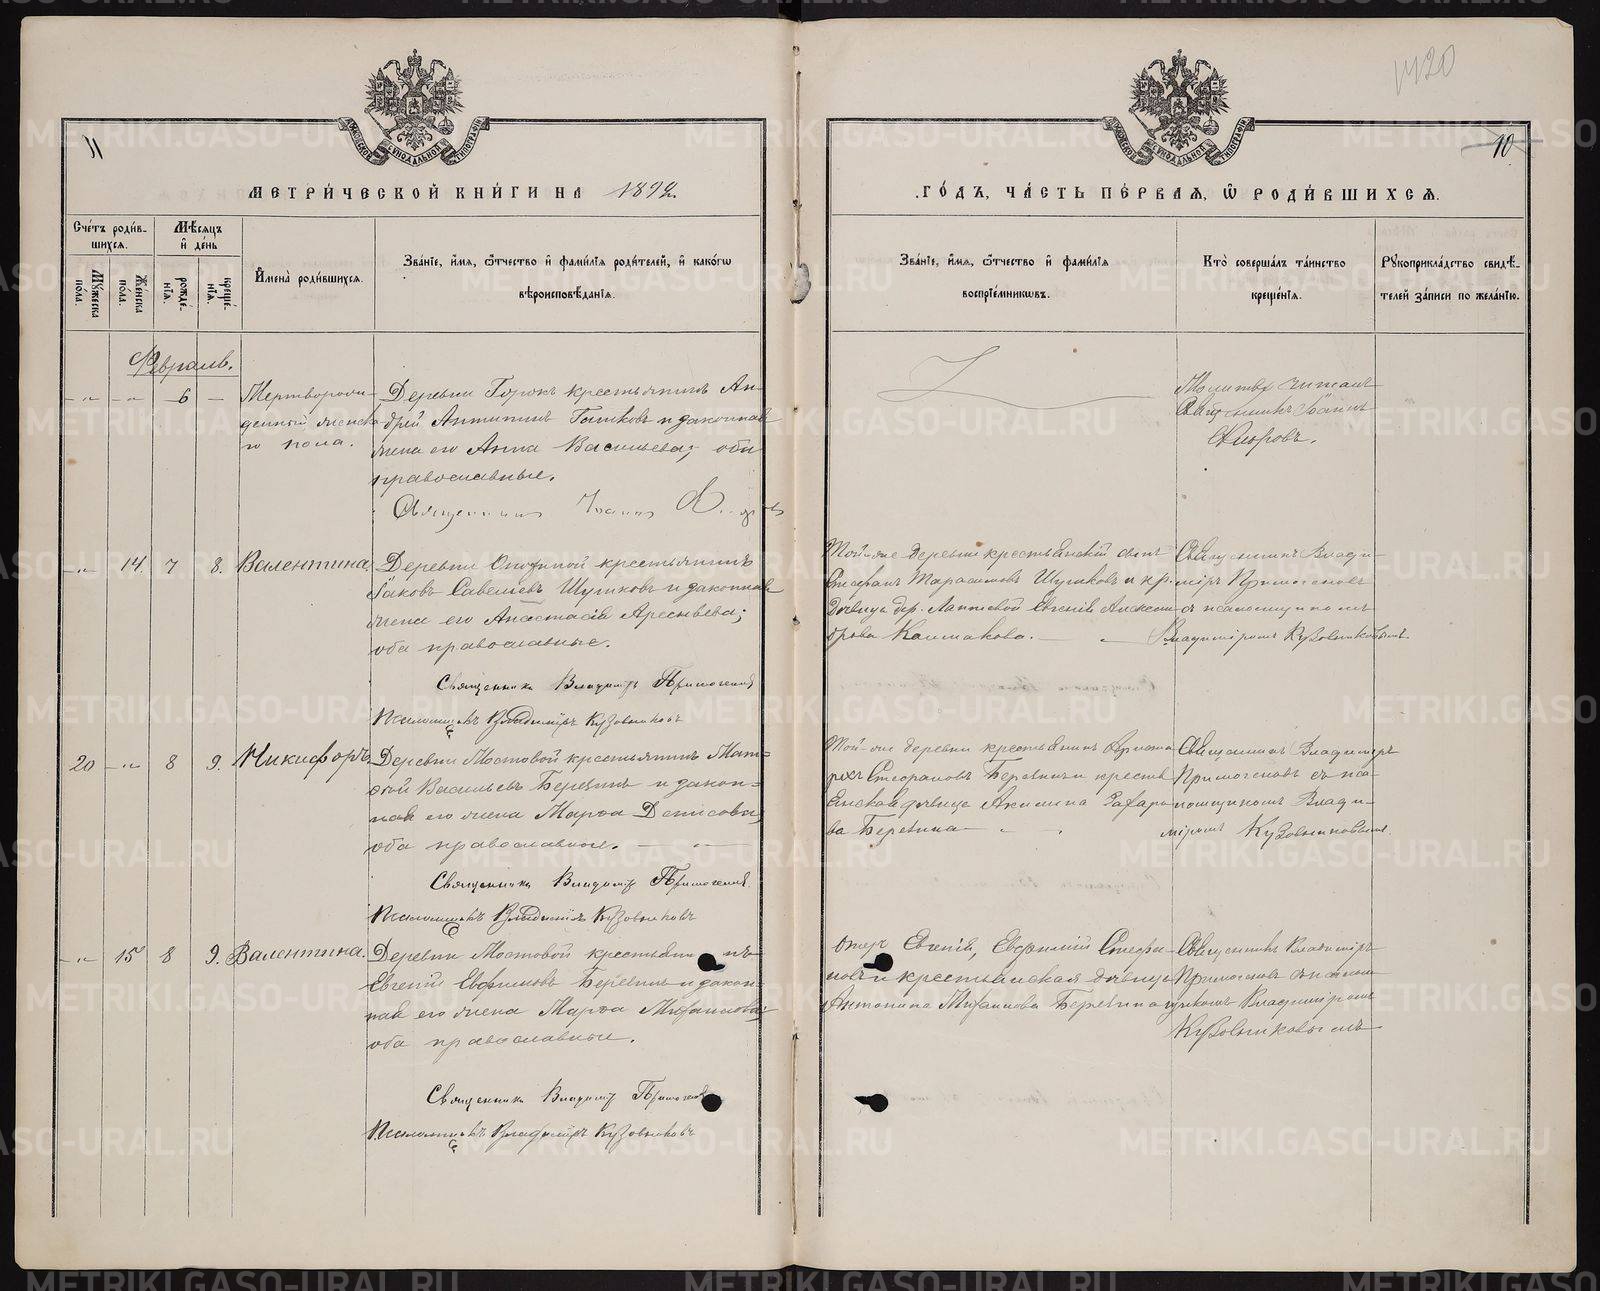 1420
11
10
СѴНОДАЛЬНОЙ ТИПОГРАФІИ
СѴНОДАЛЬНОЙ ТИПОГРАФІИ
МЕТРИ́ЧЕСКОЙ КНИ́ГИ НА 1892.
ГО́ДЪ, ЧА́СТЬ ПЕ́РВАЯ, Ѡ РОДИ́ВШИХСЯ.
Сче́тъ роди́в-
шихся.
Мѣ́сяцъ
и҆ де́нь
Му́жеска по́ла.
Же́нска по́ла.
рожде́-
нїя.
креще́-
нїя.
И҆мена̀ роди́вшихся.
Зва́нїе, и҆́мя, ѻ҆́тчество и҆ фами́лїя роди́телей, и҆ како́гѡ
вѣроисповѣ́данїя.
Зва́нїе, и҆́мя, ѻ҆́тчество и҆ фами́лїя
воспрїе́мникѡвъ.
Кто̀ соверша́лъ та́инство
креще́нїя.
Рꙋкоприкла́дство свидѣ́-
телей за́писи по жела́нїю.
Февраль.
6
Мертворожденный женска-
го пола.
Деревни крестьянинъ Ан-
дрей Антипинъ и законная
жена его Анна Васильева; оба
православные.
Священникъ Іоаннъ
Молитву читалъ
Священникъ Іоаннъ
14. 7 8. Валентина.
Деревни крестьянинъ
Іаковъ Савельевъ Шушковъ и законная
жена его Анастасія Арсеньева;
оба православные.
Священникъ Владиміръ Примогеновъ
Псаломщикъ Владиміръ Кузовниковъ
Той-же деревни крестьянскій сынъ
Стефанъ Тарасиновъ Шушковъ и кр.
дѣвица дер. Лаптевой Евгенія
Священникъ Влади-
міръ Примогеновъ
съ псаломщикомъ
Владиміромъ Кузовниковымъ.
20 8 9. Никифоръ.
Деревни Мостовой крестьянинъ Мат-
ѳей Васильевъ Березинъ и закон-
ная его жена Марѳа Денисова;
оба православные.
Священникъ Владиміръ Примогеновъ
Псаломщикъ Владиміръ Кузовниковъ
Той-же деревни крестьянинъ
Стефановъ Березинъ и кресть-
янская дѣвица Акилина Захаро-
ва Березина
Священникъ Владиміръ
Примогеновъ съ пса-
ломщикомъ Влади-
міромъ Кузовниковымъ.
15 8 9. Валентина.
Деревни Мостовой крестьянинъ
Евгеній Евфимовъ Березинъ и закон-
ная его жена Марѳа Михаилова;
оба православные.
Священникъ Владиміръ Примогеновъ
Псаломщикъ Владиміръ Кузовниковъ
отецъ Евгенія, Евфимій Стефа-
новъ и крестьянская дѣвица
Антонина Михаилова Березина
Священникъ Владиміръ
Примогеновъ съ псалом-
щикомъ Владиміромъ
Кузовниковымъ
METRIKI.GASO-URAL.RU